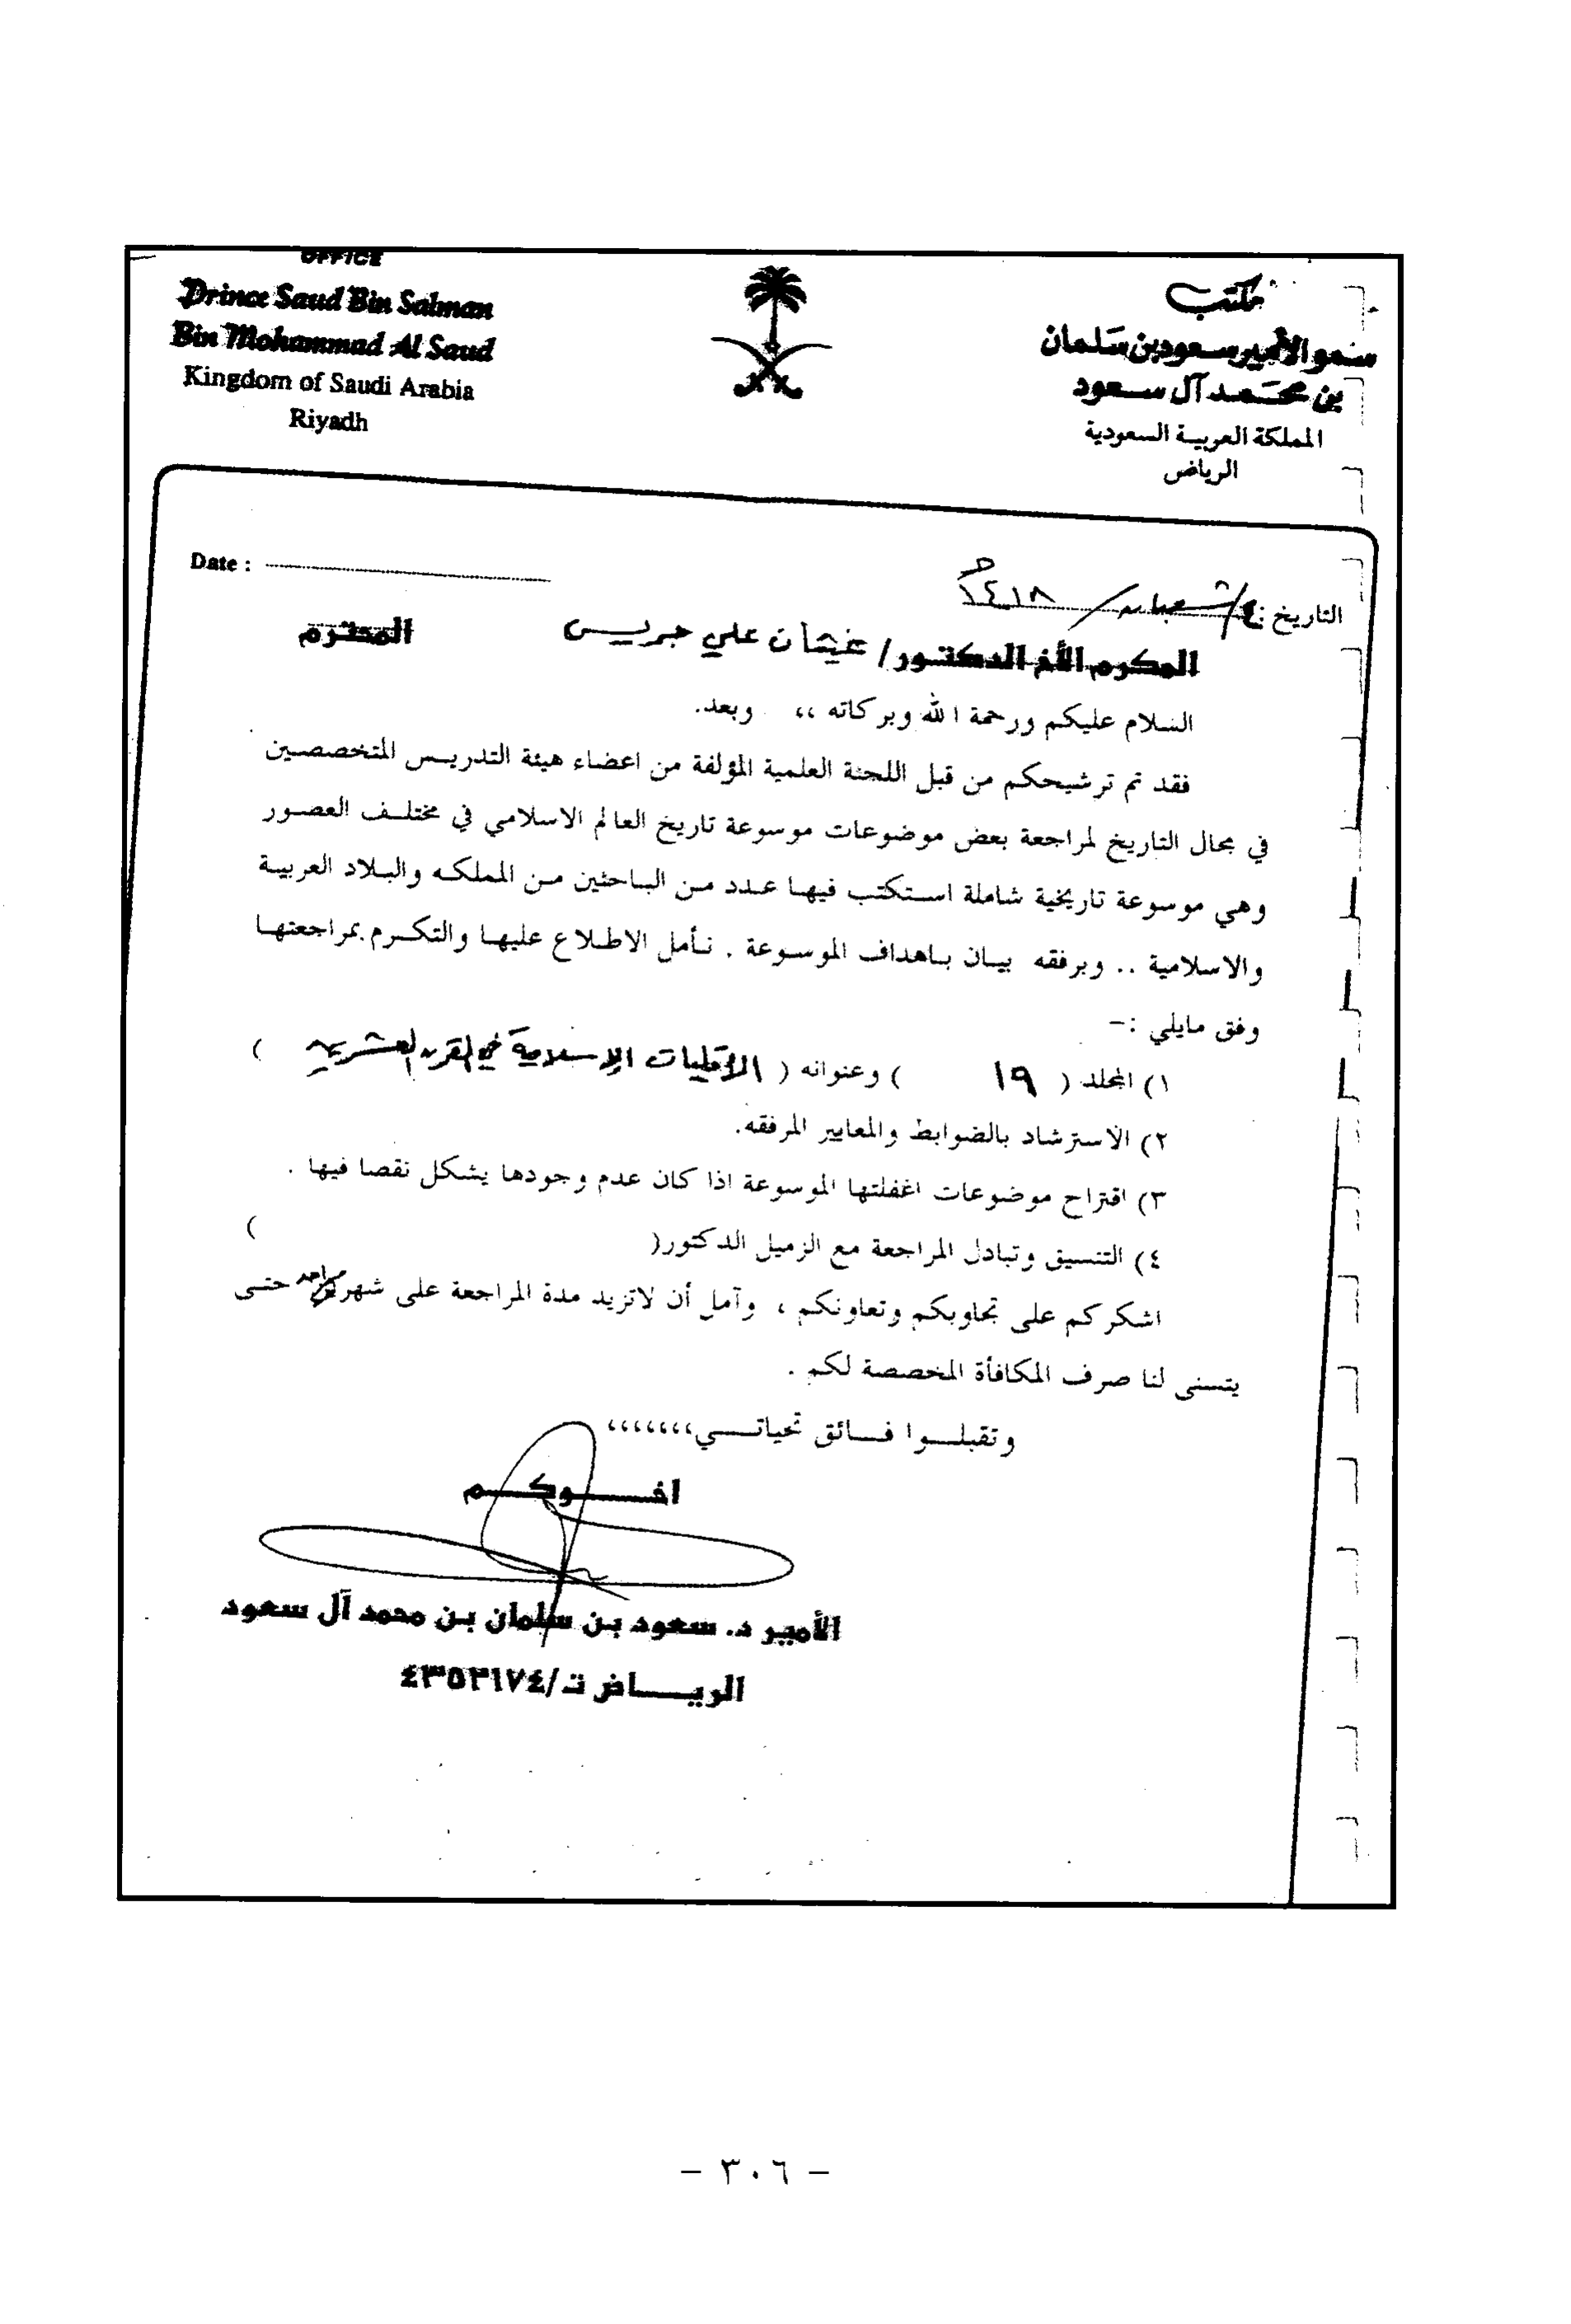 OFFICE
Prince Saud Bin Salman
Bin Mohammad Al Saud
Kingdom of Saudi Arabia
Riyadh
مكتب
سمو الأمير سعود بن سلمان
بن محمد آل سعود
المملكة العربية السعودية
الرياض
Date :
التاريخ : ٤/ شعبان / ١٤١٨ هـ
المكرم الأخ الدكتور/ غيثان علي جريس المحترم
السلام عليكم ورحمة الله وبركاته ،، وبعد.
فقد تم ترشيحكم من قبل اللجنة العلمية المؤلفة من اعضاء هيئة التدريس المتخصصين
في مجال التاريخ لمراجعة بعض موضوعات موسوعة تاريخ العالم الاسلامي في مختلف العصور
وهي موسوعة تاريخية شاملة استكتب فيها عدد من الباحثين من المملكه والبلاد العربية
والاسلامية .. وبرفقه بيان باهداف الموسوعة . نأمل الاطلاع عليها والتكرم بمراجعتها
وفق مايلي :-
١) المجلد ( ١٩ ) وعنوانه ( الأقليات الإسلامية في القرن العشرين )
٢) الاسترشاد بالضوابط والمعايير المرفقه.
٣) اقتراح موضوعات اغفلتها الموسوعة اذا كان عدم وجودها يشكل نقصا فيها .
٤) التنسيق وتبادل المراجعة مع الزميل الدكتور( )
اشكركم على تجاوبكم وتعاونكم ، وآمل أن لاتزيد مدة المراجعة على شهر واحد حتى
يتسنى لنا صرف المكافأة المخصصة لكم .
وتقبلوا فائق تحياتي،،،،،،،
اخوكم
الأمير د. سعود بن سلمان بن محمد آل سعود
الرياض ت/٤٣٥٣١٧٤
- ٣٠٦ -